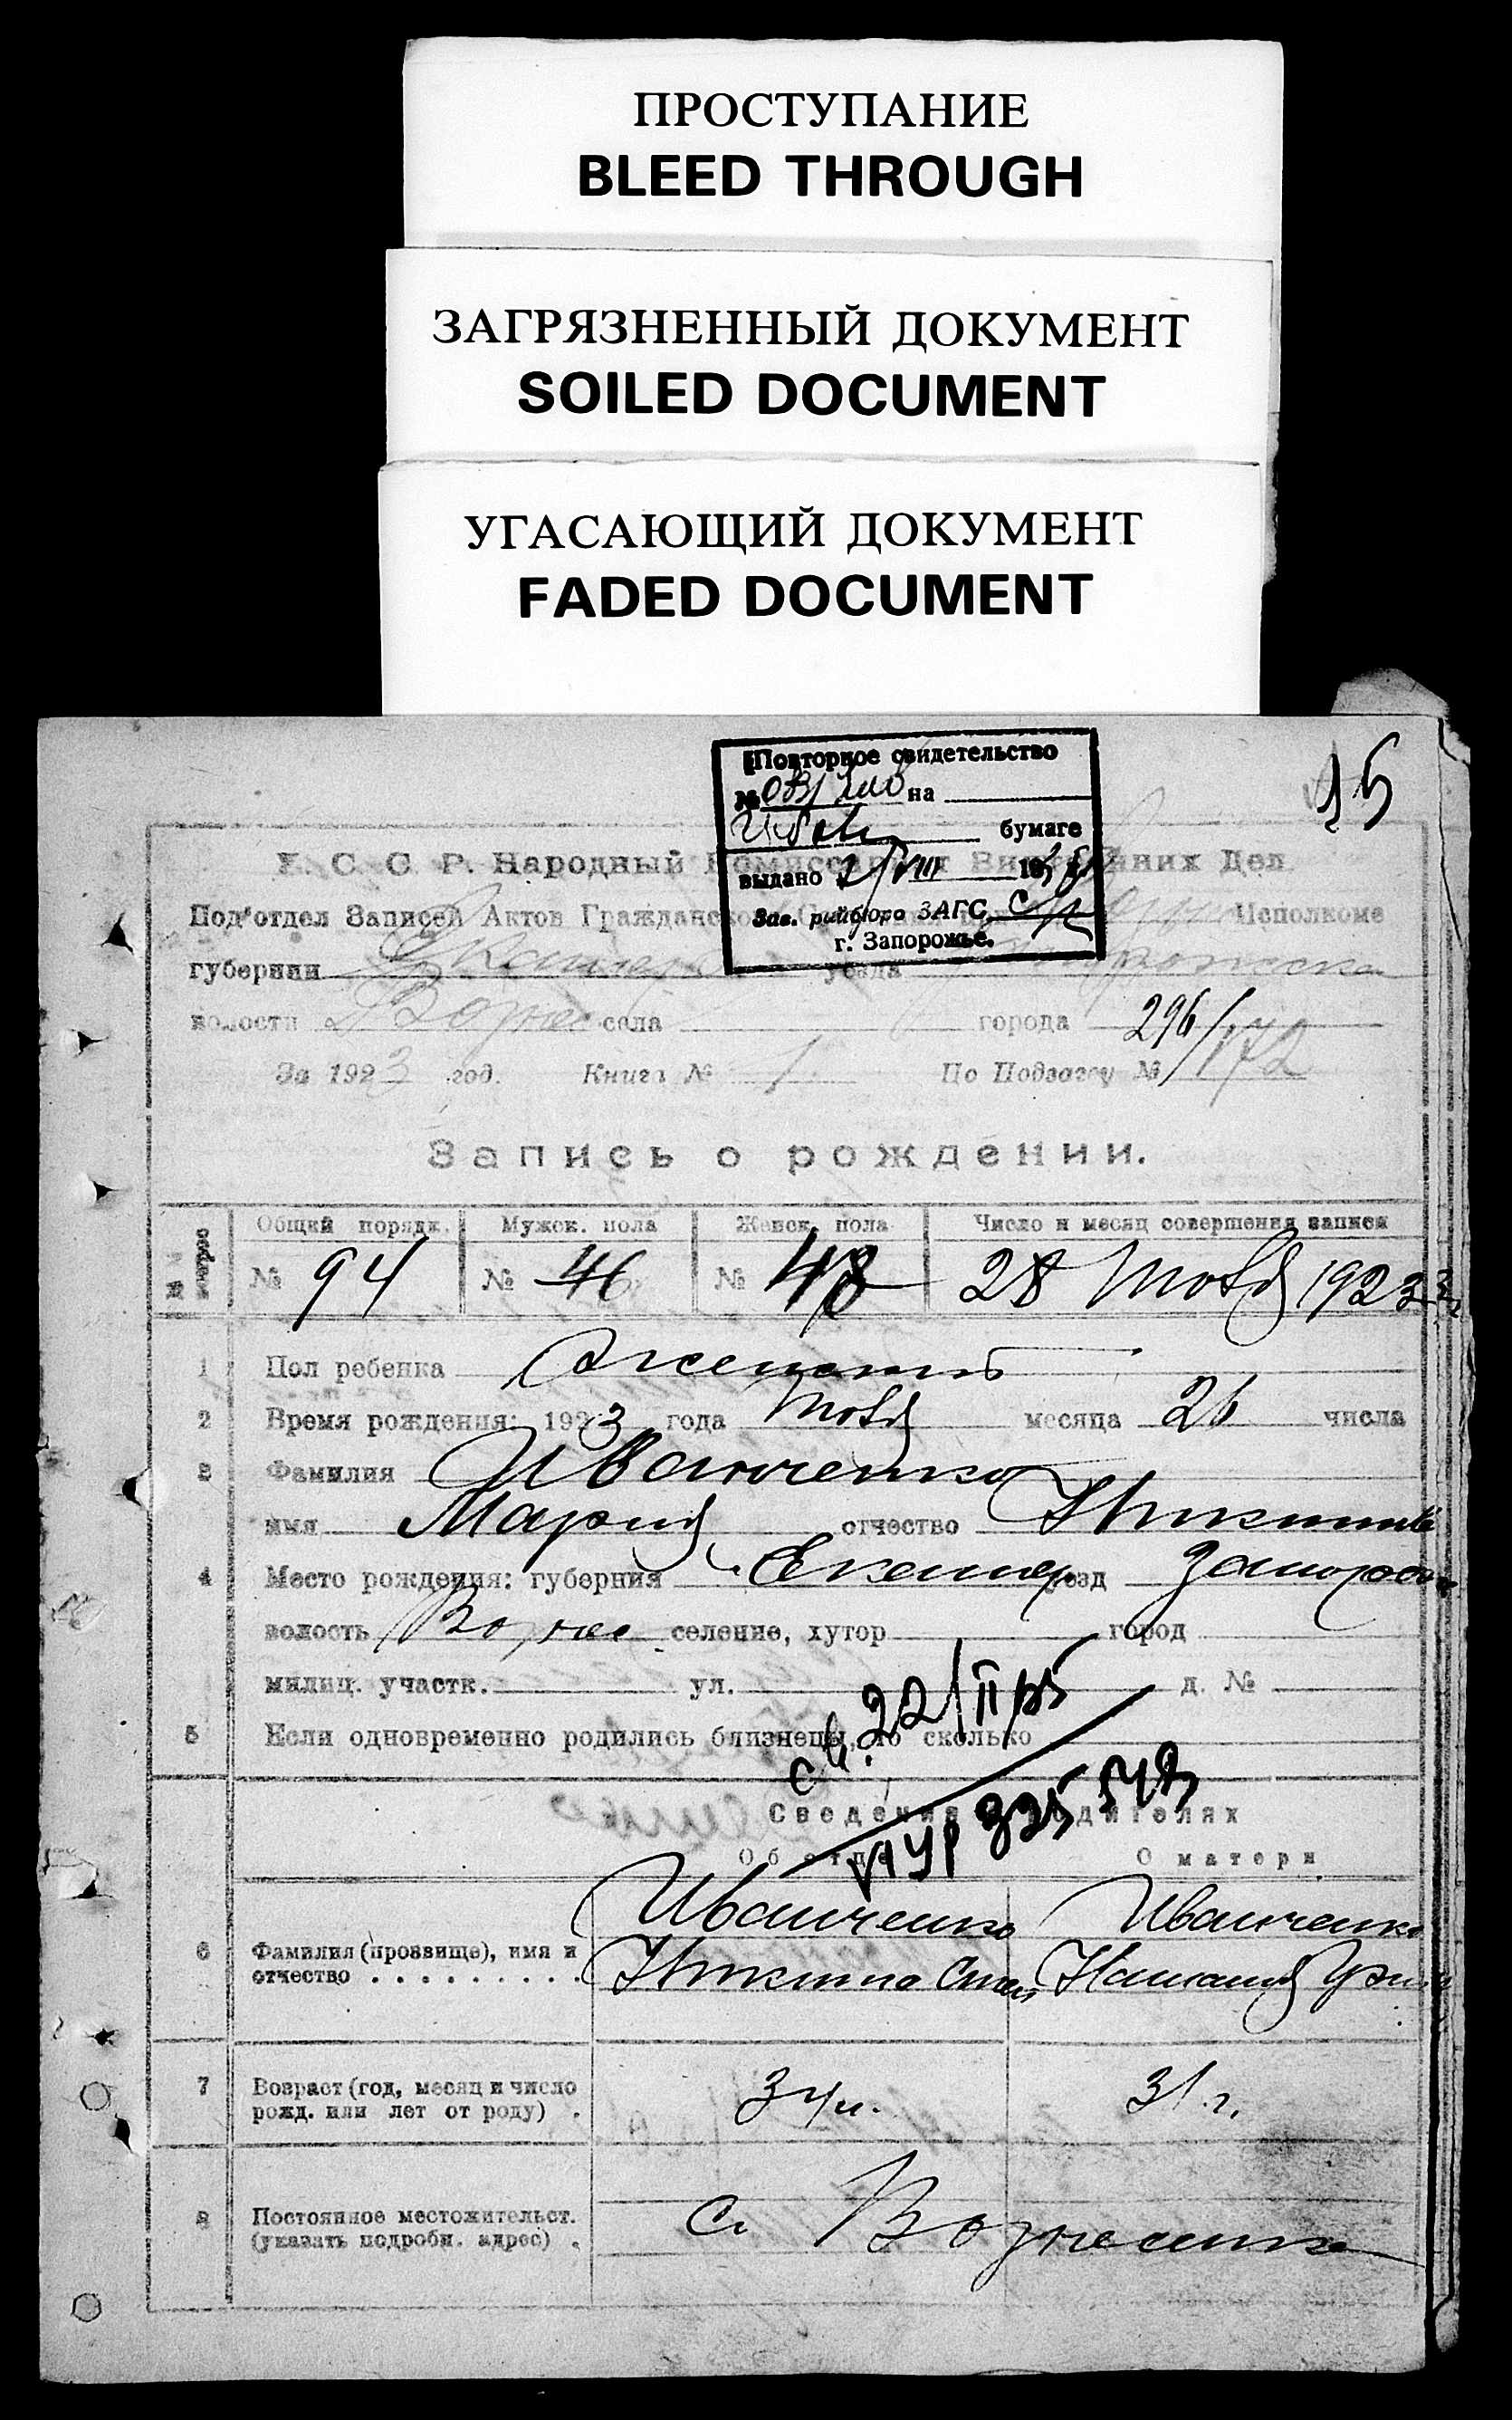 ПРОСТУПАНИЕ
BLEED THROUGH
ЗАГРЯЗНЕННЫЙ ДОКУМЕНТ
SOILED DOCUMENT
УГАСАЮЩИЙ ДОКУМЕНТ
FADED DOCUMENT
Повторное свидетельство
№ на
бумаге
выдано 2/VIII 19
Зав. райбюро ЗАГС
г. Запорожье.
У. С. С. Р. Народный Комиссариат Внутренних Дел
Под'отдел Записей Актов Гражданского Исполкоме
губернии Екатер уезда
волости Вознес села города 296/
За 1923 год. Книга № 1 По Подзагсу № 172
Запись о рождении.
Общий порядк. Мужск. пола Женск. пола Число и месяц совершения записи
№ 94 № 46 № 48 28 Мая 1923 г
1 Пол ребенка Женский
2 Время рождения: 1923 года Мая месяца 26 числа
3 Фамилия Иванченко
имя Мария отчество Никитина
4 Место рождения: губерния Екатер уезд Запорож
волость Вознес селение, хутор город
милиц. участк. ул. д. №
5 Если одновременно родились близнецы, то сколько
св. 22/II
325
Сведения о родителях
Об отце О матери
6 Фамилия (прозвище), имя и отчество Иванченко Иванченко
Никита Наталия
7 Возраст (год, месяц и число рожд. или лет от роду) 34 л. 31 г.
8 Постоянное местожительст. (указать подробн. адрес) с. Вознесенка